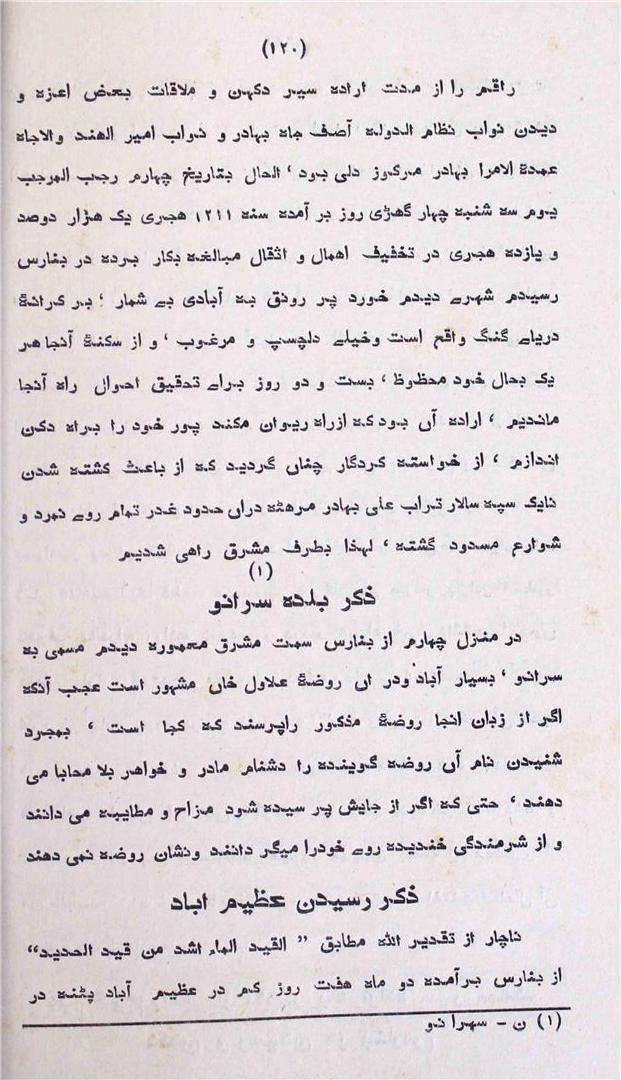 (۱۲۰)
راقم را از مدت اراده سیر دکهن و ملاقات بعض اعزه و
دیدن نواب نظام الدوله آصف جاه بهادر و نواب امیر الهند والاجاه
عمدة الامرا بهادر مرکوز دلی بود ، الحال بتاریخ چهارم رجب المرجب
یوم سه شنبه چهار گهڑی روز بر آمده سنه ۱۲۱۱ هجری یک هزار دوصد
و یازده هجری در تخفیف احمال و اثقال مبالغه بکار برده در بنارس
رسیدم شهرے دیدم خورد پر رونق به آبادی بے شمار ، بر کرانهٔ
دریاے گنگ واقع است وخیلے دلچسپ و مرغوب ، و از سکنهٔ آنجا هر
یک بحال خود محظوظ ، بست و دو روز براے تحقیق احوال راه آنجا
ماندیم ، اراده آں بود که ازراه ریوان مکند پور خود را براه دکن
اندازم ، از خواسته کردگار چناں گردید که از باعث کشته شدن
نایک سپه سالار تراب علی بهادر مرهٹه دراں حدود غدر تمام روے نمرد و
شوارع مسدود گشته ، لهذا بطرف مشرق راهی شدیم
(۱)
ذکر بلده سرانو
در منزل چهارم از بنارس سمت مشرق معموره دیدم مسمی به
سرانو ، بسیار آباد ودر اں روضهٔ علاول خاں مشهور است عجب آنکه
اگر از زبان انجا روضهٔ مذکور راپرسند که کجا است ، بمجرد
شنیدن نام آں روضه گوینده را دشنام مادر و خواهر بلا محابا می
دهند ، حتی که اگر از جایش پر سیده شود مزاح و مطایبه می دانند
و از شرمندگی خندیده روے خودرا میگر دانند ونشان روضه نمی دهند
ذکر رسیدن عظیم اباد
ناچار از تقدیر الله مطابق ” القید الماء اشد من قید الحدید“
از بنارس برآمده دو ماه هفت روز کم در عظیم آباد پٹنه در
(۱) ن - سهرا نو